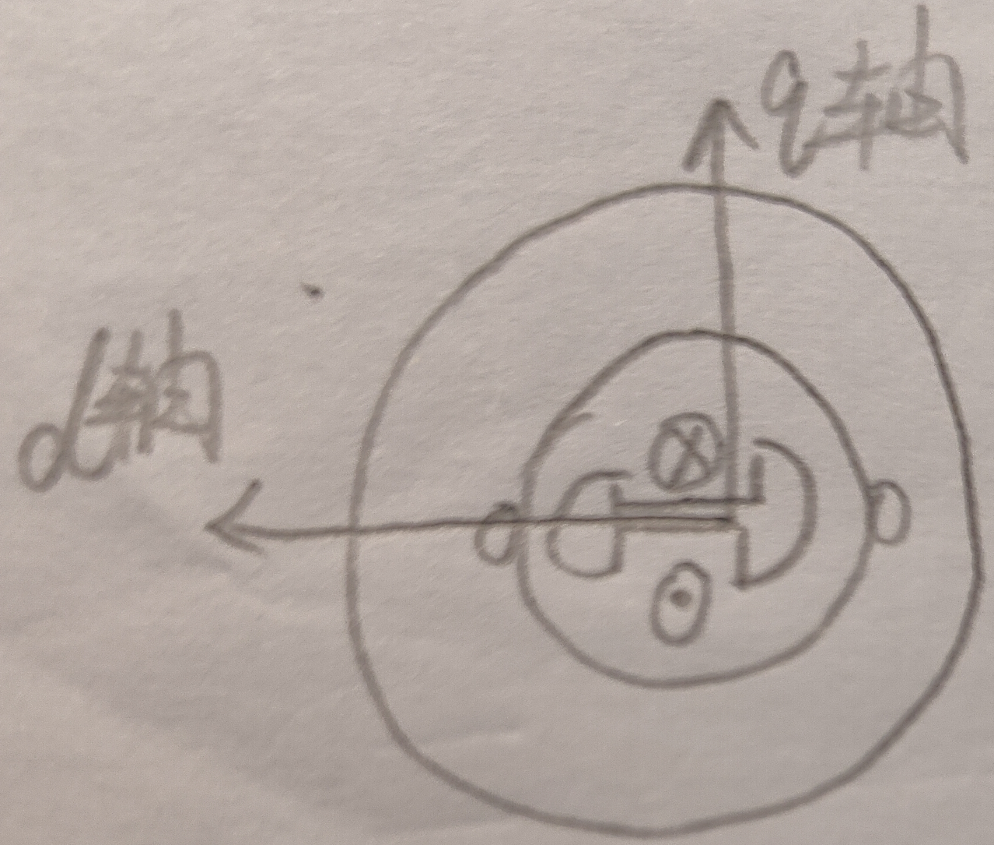 q轴
d轴